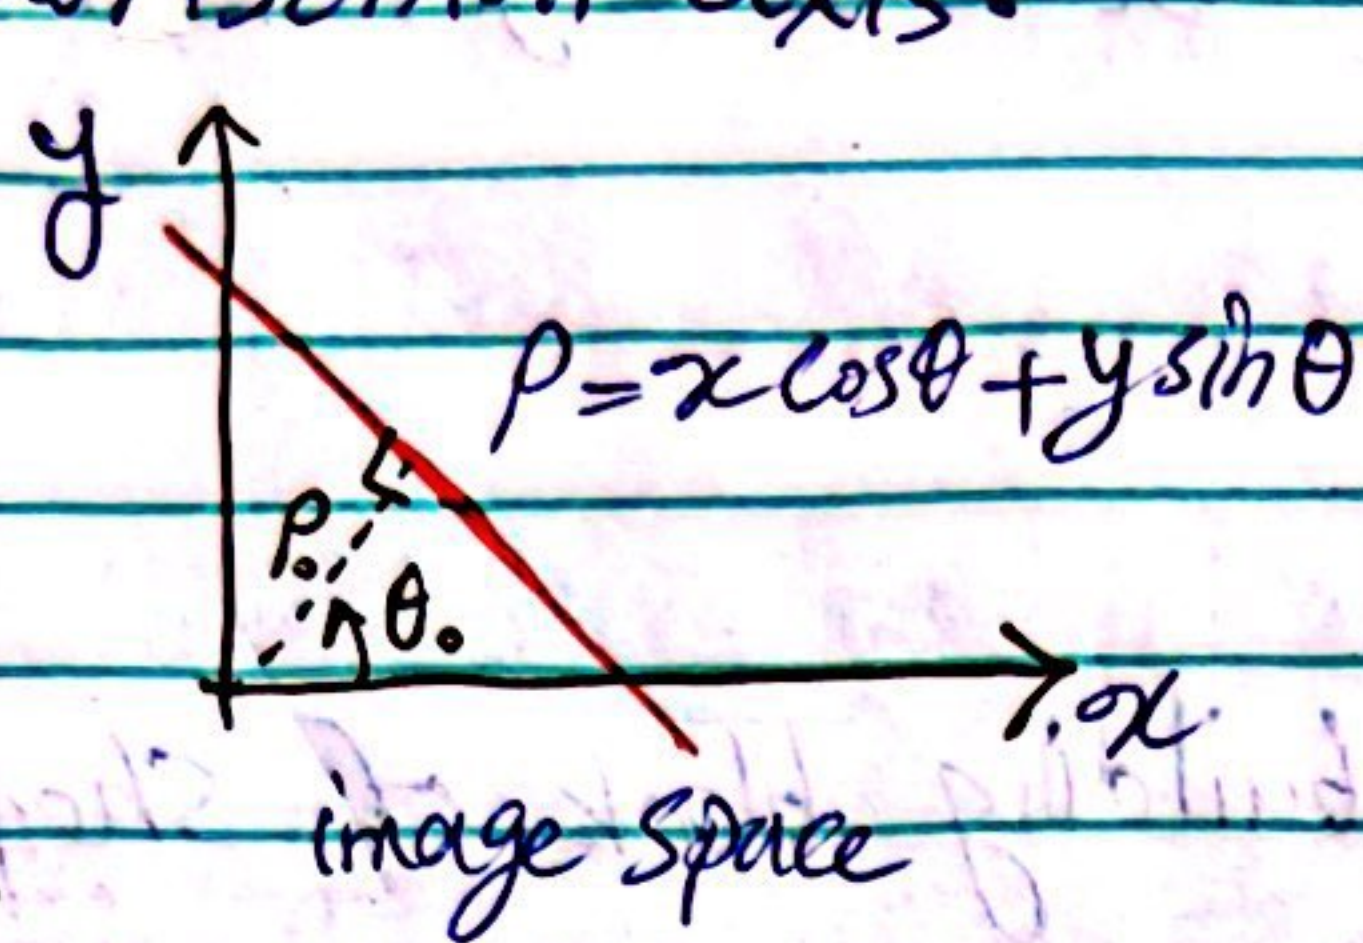 axis.
y
ρ = x cosθ + y sinθ
ρ₀
θ₀
x
image space